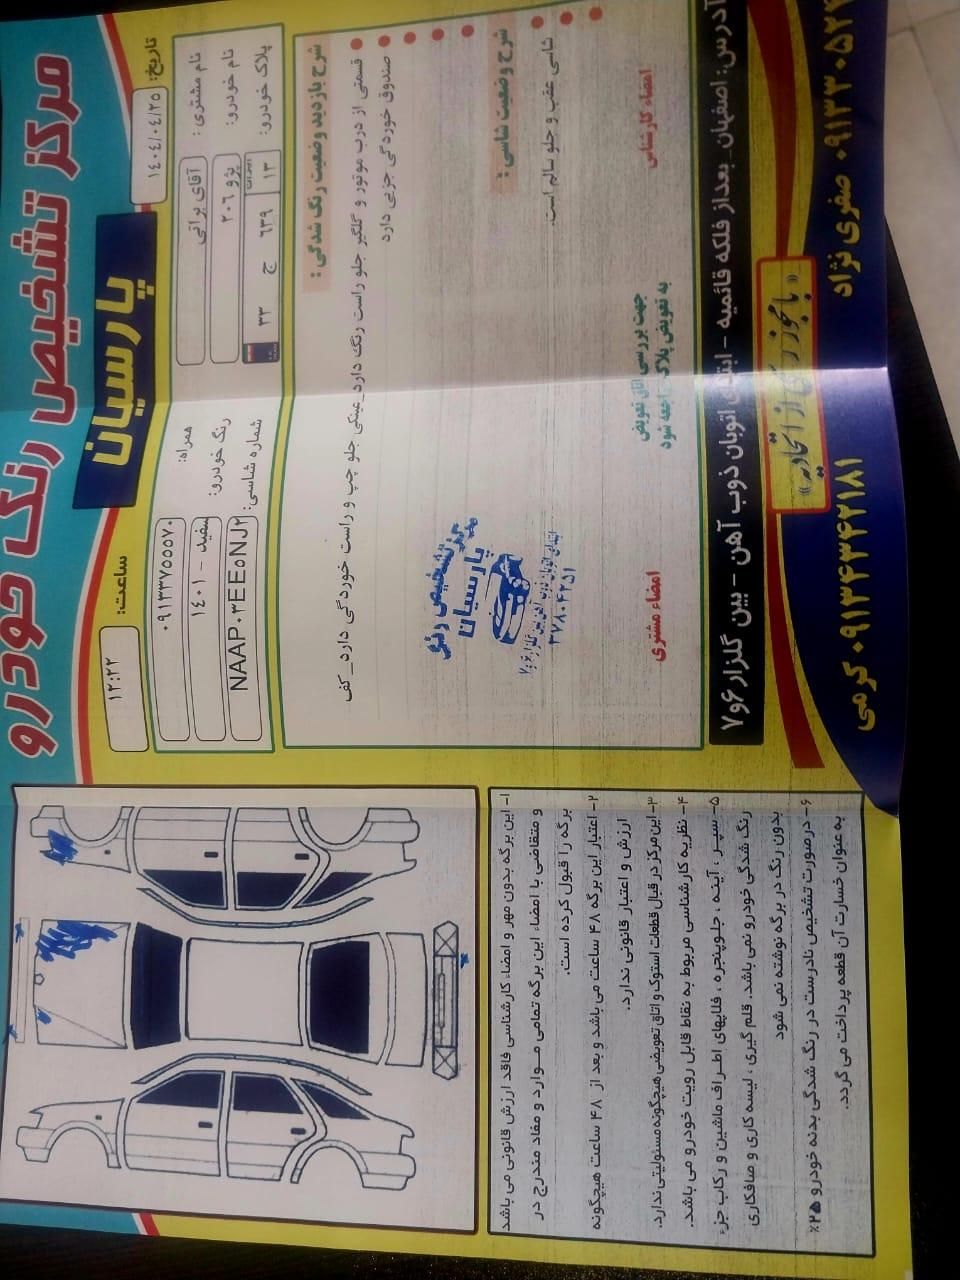 مرکز تشخیص رنگ خودرو
پارسیان
تاریخ: ۱۴۰۴/۰۴/۲۵
ساعت: ۱۲:۲۲
نام مشتری: آقای براتی
همراه: ۰۹۱۳۳۷۵۵۵۷۰
نام خودرو: پژو ۲۰۶
رنگ خودرو: سفید - ۱۴۰۱
پلاک خودرو: ایران ۱۳ ۶۳۹ ج ۳۳
شماره شاسی: NAAP۰۳EE۵NJ۲
شرح بازدید وضعیت رنگ شدگی:
قسمتی از درب موتور و گلگیر جلو راست رنگ دارد_عینکی جلو چپ و راست خوردگی دارد_کف
صندوق خوردگی جزیی دارد
شرح وضعیت شاسی:
شاسی عقب و جلو سالم است.
امضاء کارشناس
جهت بررسی اتاق تعویض
به تعویض پلاک مراجعه شود
امضاء مشتری
مرکز تشخیص رنگ
پارسیان
۳۷۸۰۴۲۵۱
آدرس: اصفهان_بعداز فلکه قائمیه - ابتدای اتوبان ذوب آهن - بین گلزار ۶و۷
«با مجوز رسمی از اتحادیه»
۰۹۱۳۳۰۵۲ صفری نژاد
۰۹۱۳۴۳۴۲۱۸۱ کرمی
۱- این برگه بدون مهر و امضاء کارشناسی فاقد ارزش قانونی می باشد
و متقاضی با امضاء این برگه تمامی مـوارد و مفاد مندرج در
برگه را قبول کرده است.
۲- اعتبار این برگه ۴۸ ساعت می باشد و بعد از ۴۸ ساعت هیچگونه
ارزش و اعتبار قانونی ندارد.
۳-این مرکز در قبال قطعات استوک و اتاق تعویضی هیچگونه مسئولیتی ندارد.
۴- نظریه کارشناسی مربوط به نقاط قابل رویت خودرو می باشد.
۵- سپـر ، آینه ، جلوپنجره ، فلاپهای اطـراف ماشین و رکاب جزء
رنگ شدگی خودرو نمی باشد. قلم گیری ، لیسه کاری و صافکاری
بدون رنگ در برگه نوشته نمی شود
۶- در صورت تشخیص نادرست در رنگ شدگی بدنه خودرو ۲۵٪
به عنوان خسارت آن قطعه پرداخت می گردد.